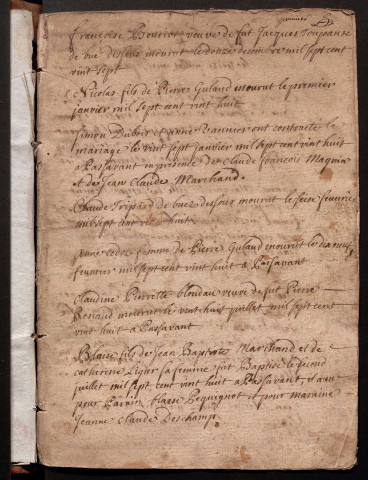 françoise Bouvot veuve de fut Jacques
de bue dessous mourut le douze decembre mil sept cent
vint sept
Nicolas fils de Pierre Guland mourut le premier
janvier mil sept cent vint huit
Simon Dubois et anne ont contracté le
mariage le vint sept janvier mil sept cent vint huit
a Passavant en presence de Claude francois Maguin
et de Jean Claude Marchand.
Claude de buez dessous mourut le seise feuvrier
mil sept cent vint huit
femme de Pierre Guland mourut le dixneuf
feuvrier mil sept cent vint huit a Passavant
Claudine Pierrille blondau veuve de fut Pierre
Renaud mourut le vint huit juillet mil sept cent
vint huit a Passavant
Blaise fils de Jean Baptiste Marchand et de
catherine Ligier sa femme fut Baptisé le second
juillet mil sept cent vint huit a Passavant, et aut
pour Parain blaise Pequignot et pour maraine
Jeanne Claude Deschamp.